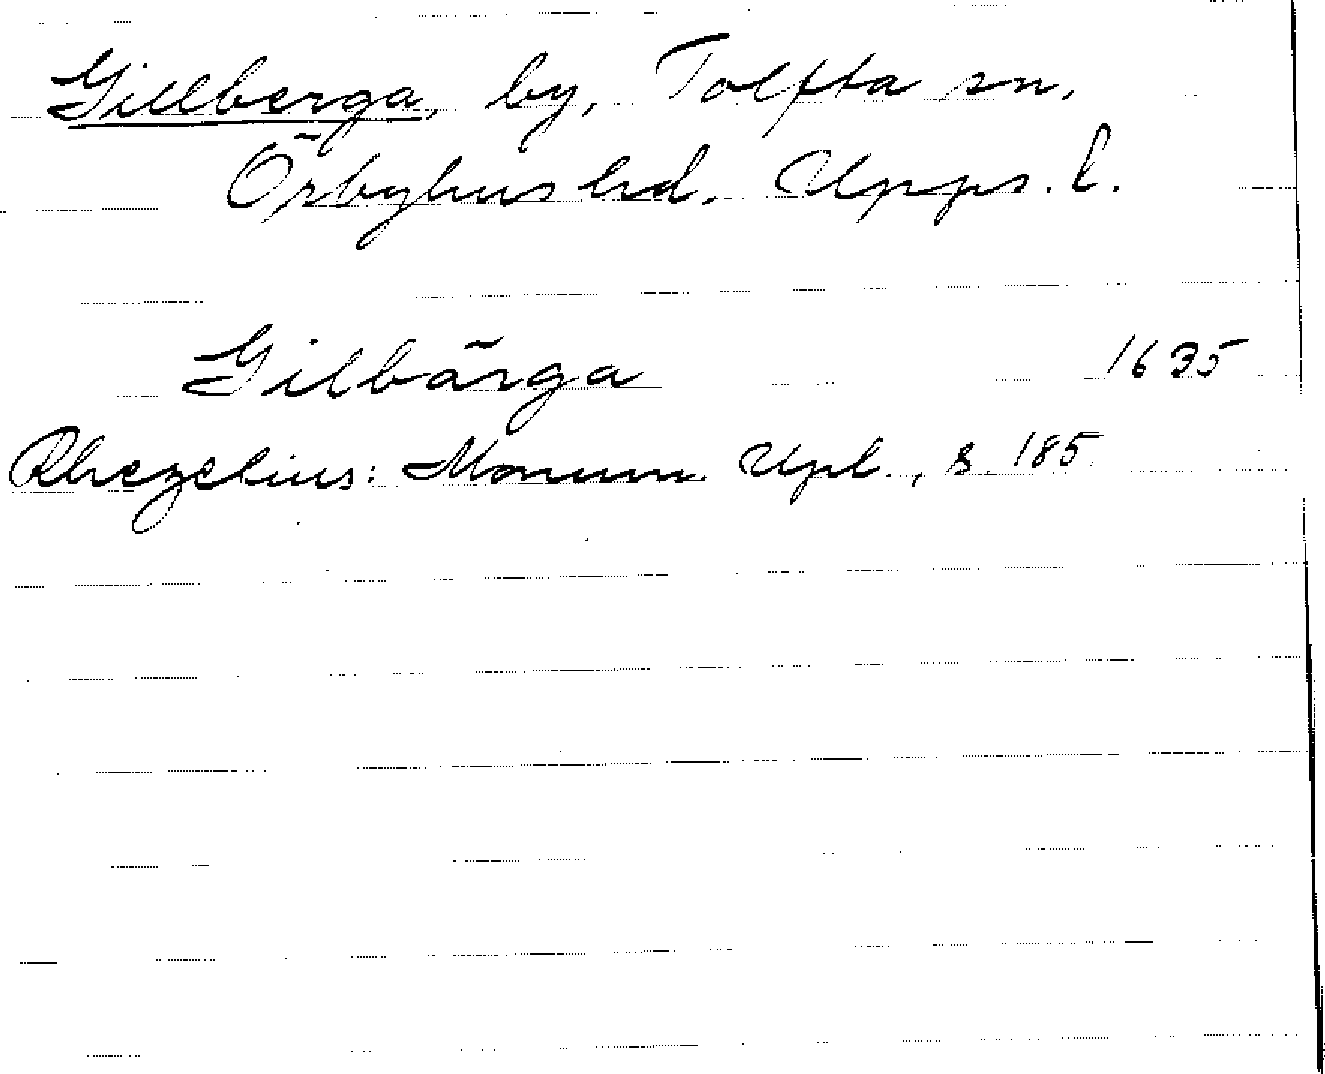 Gillberga, by, Tolfta sn.
Örbyhus hd. Upps. l.
Gilbärga 1635
Rhezelius: Monum. Upl., s. 185